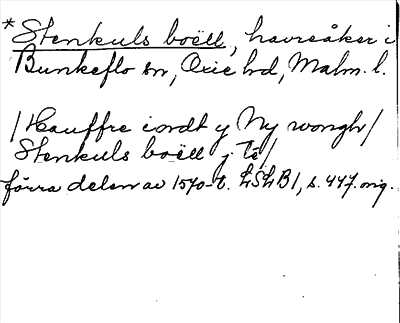 *Stenkuls boëll, havreåker i
Bunkeflo sn, Oxie hd, Malm. l.
/Hauffre iordt y Ny wongh/
Stenkuls boëll j Te/
förra delen av 1570-t. LSLB1, s. 447. orig.